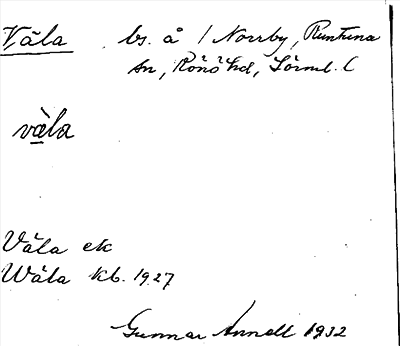 Väla bs. å / Norrby, Runtuna
sn, Rönö hd, Sörml. l
väla
Väla ek
Wäla kb. 1927
Gunnar Annell 1932